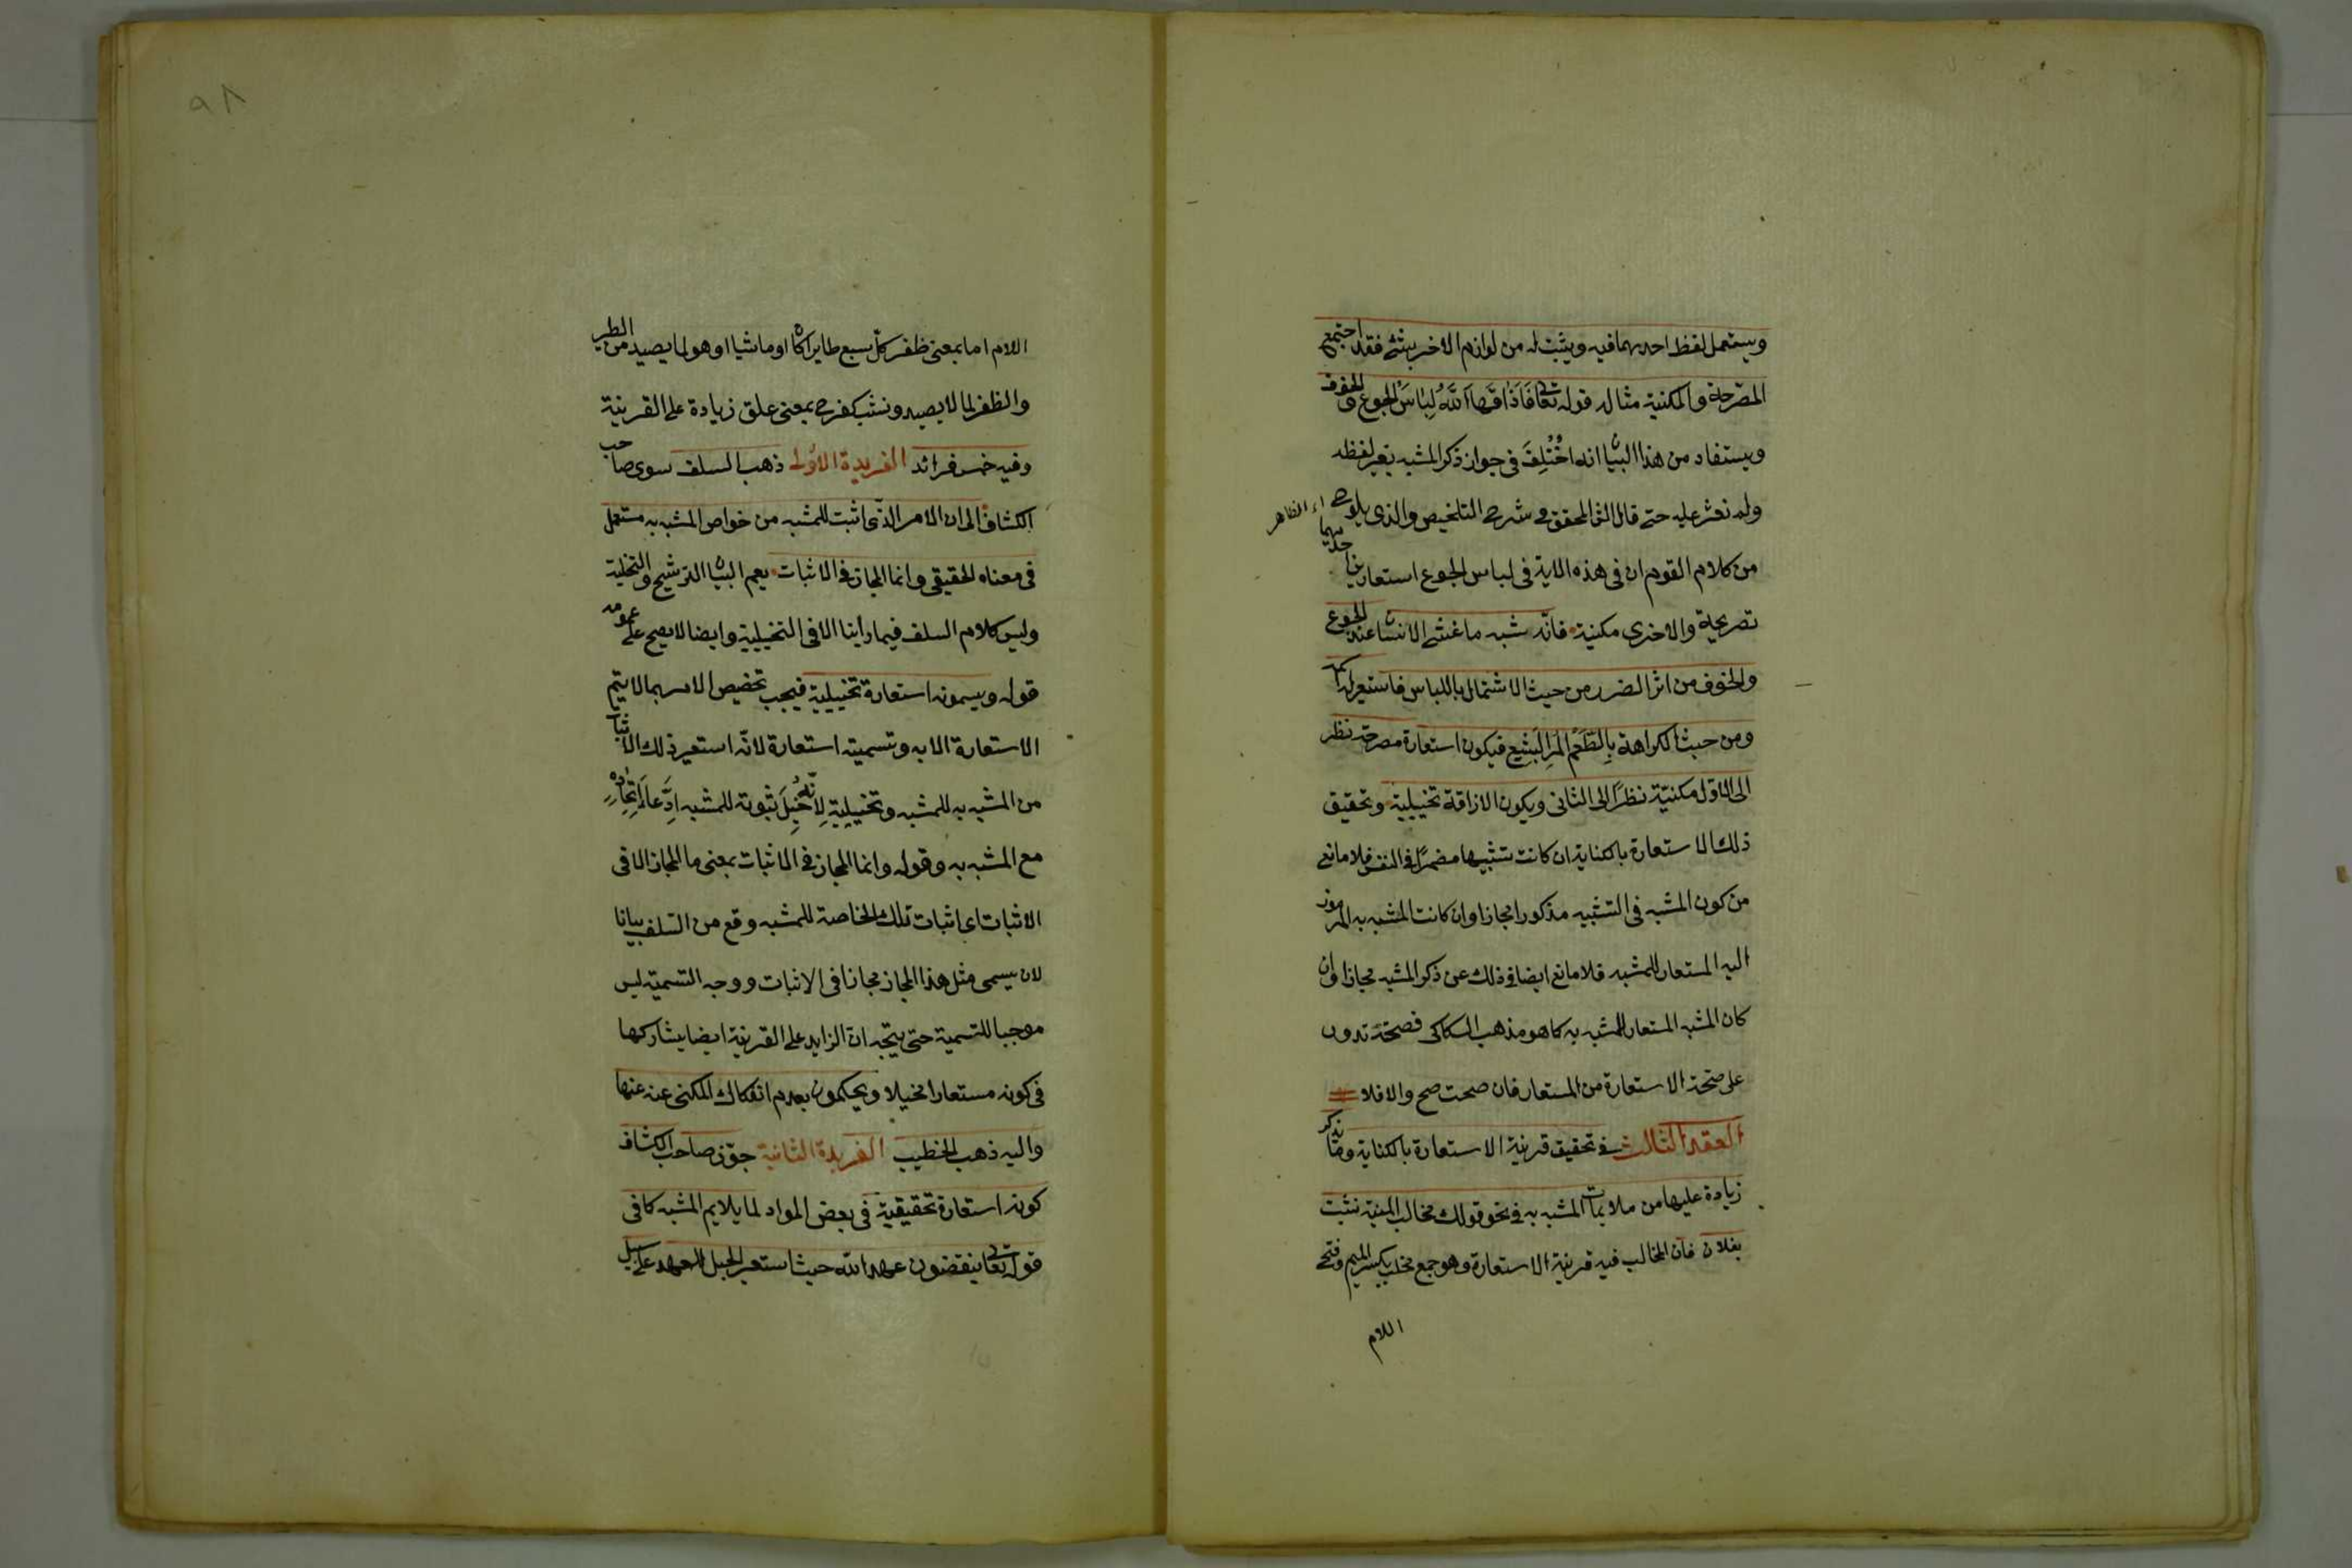 ويستعمل لفظ احدهما فيه ويثبت له من لوازم الاخر شئ فقد اجتمع
المصرحة والمكنية مثاله قوله تعا فَاَذَاقَهَا اَللّٰهُ لِبَاسَ الجوع والخوف
ويستفاد من هذا البيان انه اخْتُلِفَ فى جواز ذكر المشبه بغير لفظه
ولم نعثر عليه حتى قال الش المحقق فى شرح التلخيص والذى يلوح
اء الظاهر
من كلام القوم ان فى هذه الاية فى لباس الجوع استعارتين احديهما
تصريحية والاخرى مكنية فانّه شبه ما غشى الانسان عند الجوع
والخوف من اثر الضرر من حيث الاشتمال باللباس فاستعير له اسمه
ومن حيث الكراهة بِالطَّعْمِ المَرِ البَشِيعِ فيكون استعارة مصرحة نظر
الى الاول مكنيّة نظرًا الى الثانى ويكون الاذاقة تخييلية وتحقيق
ذلك الاستعارة بالكناية ان كانت تشبيها مضمرًا فى النفس فلا مانع
من كون المشبه فى التشبيه مذكورا مجازا وان كانت المشبه به المرموز
اليه المستعار للمشبه فلا مانع ايضا فى ذلك عن ذكر المشبه مجازا وان
كان المشبه المستعار للمشبه به كما هو مذهب السكاكى فصحته تدور
على صحة الاستعارة من المستعار فان صحت صح والا فلا
العقد الثالث فى تحقيق قرينة الاستعارة بالكناية وما يذكر
زيادة عليها من ملايمات المشبه به فى نحو قولك مخالب المنية نشبت
بفلان فان المخالب فيه قرينة الاستعارة وهو جمع مخلب بكسر الميم وفتح
اللام
٩٨
اللام اما بمعنى ظفر كل سبع طايرا كان او ماشيا او هو لما يصيد من الطير
والظفر لما لا يصيد ونشب كفرح بمعنى علق زيادة على القرينة
وفيه خمس فرائد الفريدة الاُولى ذهب السلف سوى صاحب
الكشاف الى ان الامر الذى اثبت للمشبه من خواص المشبه به مستعمل
فى معناه الحقيقى وانما المجاز فى الاثبات يعم البيان الترشيح والتخلية
وليس كلام السلف فيما رأينا الا فى التخييلية وايضا لا يصح على عمومه
قوله ويسمونه استعارة تخييلية فيجب تخصيص الامر بما لا يتم
الاستعارة الا به وتسميته استعارة لانّه استعير ذلك الاثبات
من المشبه به للمشبه وتخييلية لِاَنّه خُيِّلَ ثبوته للمشبه اِدِّعَا لِاتِّحَادِهِ
مع المشبه به وقوله وانما المجاز فى الاثبات بمعنى ما المجاز الا فى
الاثبات اى اثبات تلك الخاصة للمشبه وقع من السلف بيانا
لان يسمى مثل هذا المجاز مجازا فى الاثبات ووجه التسمية ليس
موجبا للتسمية حتى يتجه ان الزايد على القرينة ايضا يشاركها
فى كونه مستعارا مخيلا ويحكمون بعدم انفكاك المكنى عنه عنها
واليه ذهب الخطيب الفريدة الثانية جوّز صاحب الكشاف
كونه استعارة تحقيقية فى بعض المواد لما يلايم المشبه كما فى
قوله تعا ينقضون عهد الله حيث استعير الحبل للعهد على سبيل